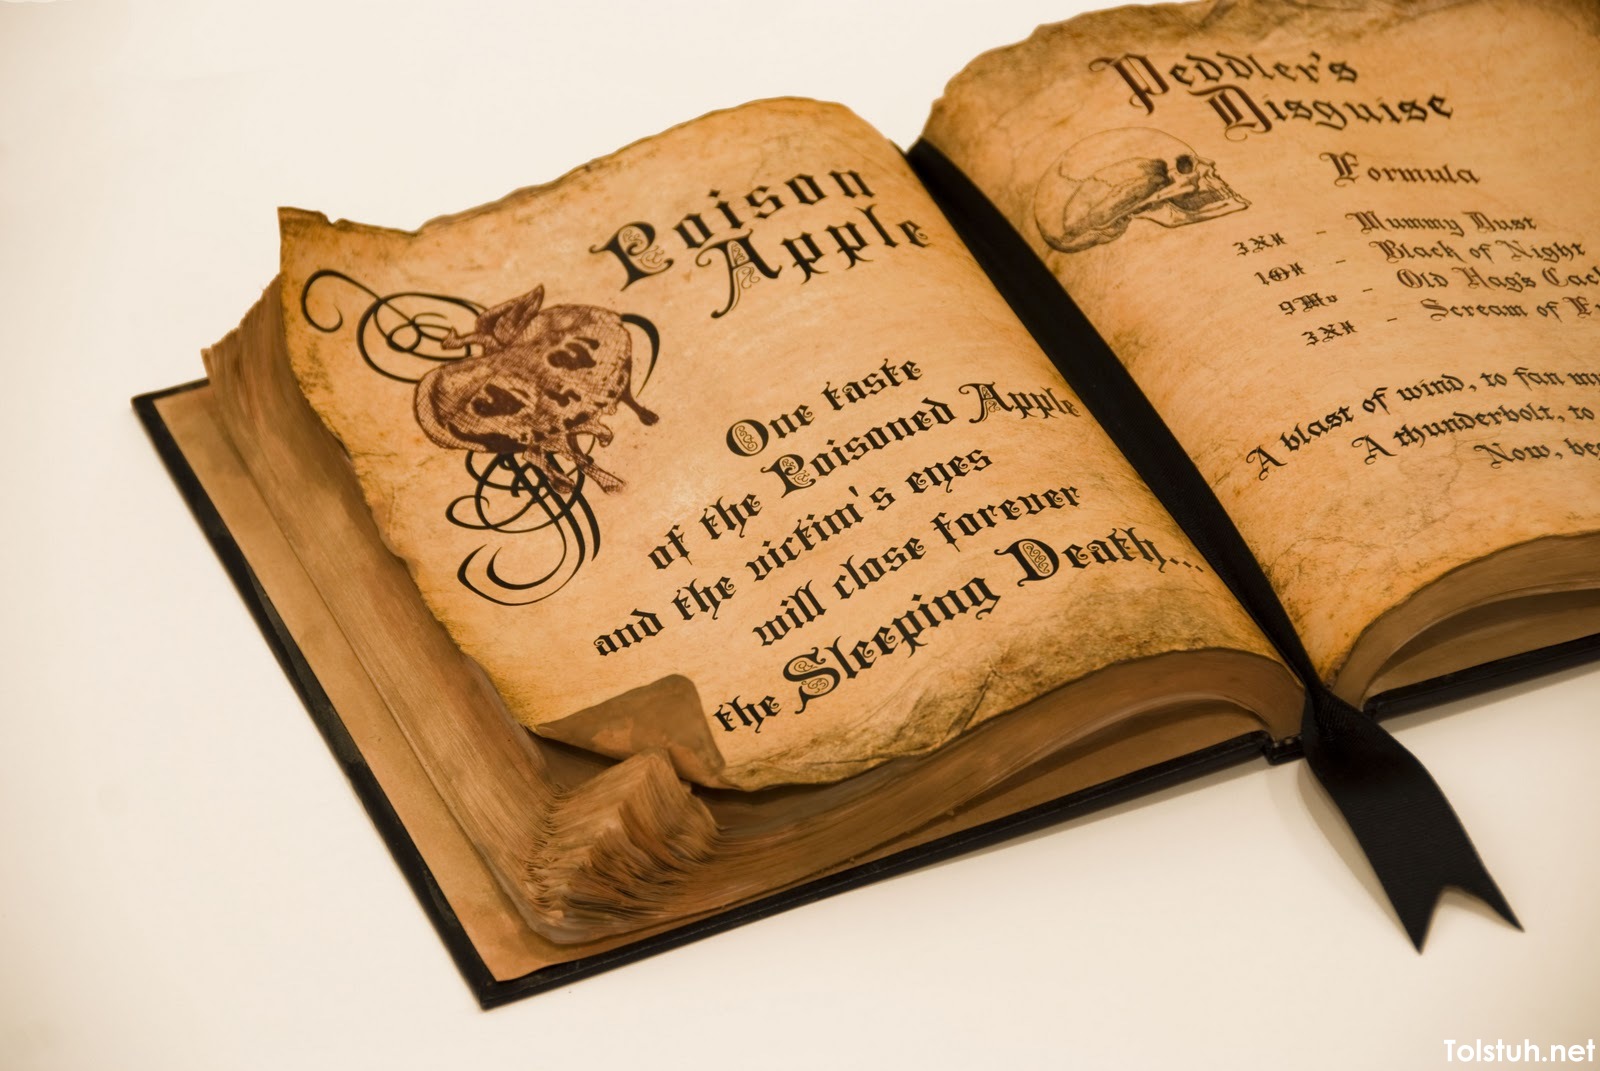 Poison
Apple
One taste
of the Poisoned Apple
and the victim's eyes
will close forever
the Sleeping Death...
Peddler's
Disguise
Formula
- Mummy Dust
- Black of Night
- Old Hag's
- Scream of
A blast of wind, to fan
A thunderbolt, to
Now,
Tolstuh.net